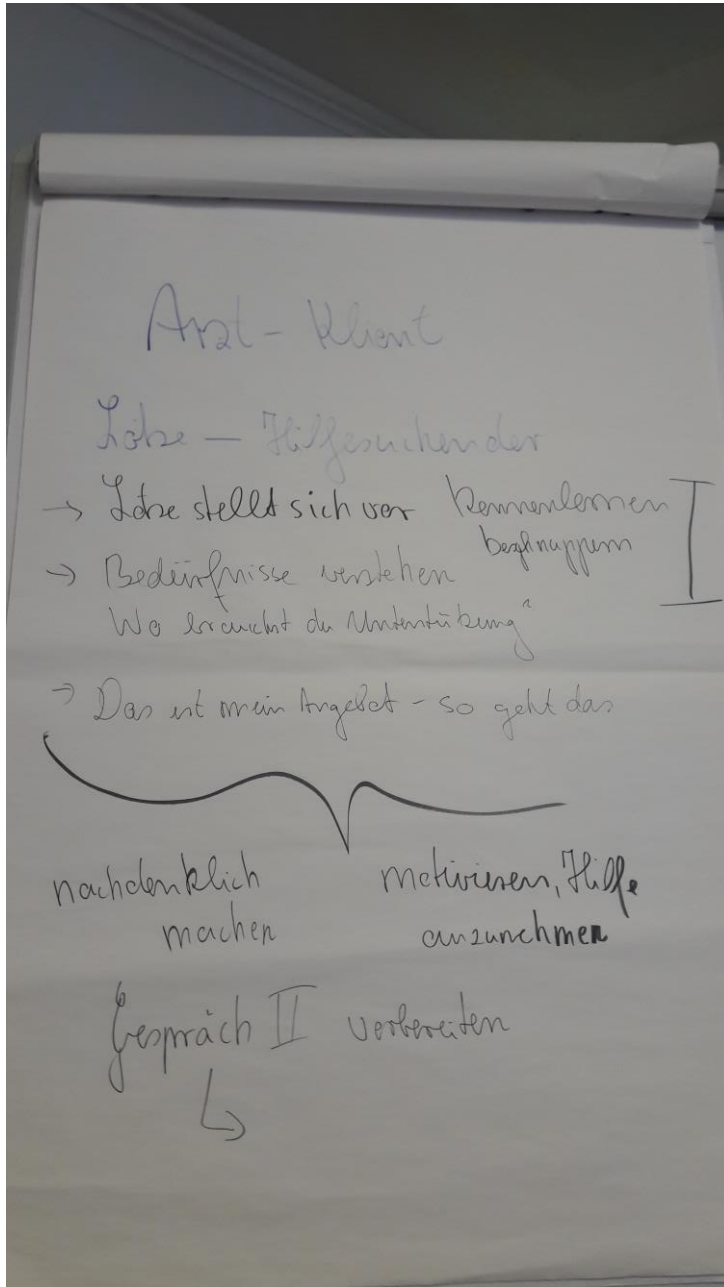 Arzt - Klient
Lotse — Hilfesuchender
→ Lotse stellt sich vor Kennenlernen I
beschnuppern
→ Bedürfnisse verstehen
Wo brauchst du Unterstützung"
→ Das ist mein Angebot - so geht das
nachdenklich motivieren, Hilfe
machen anzunehmen
Gespräch II vorbereiten
↳